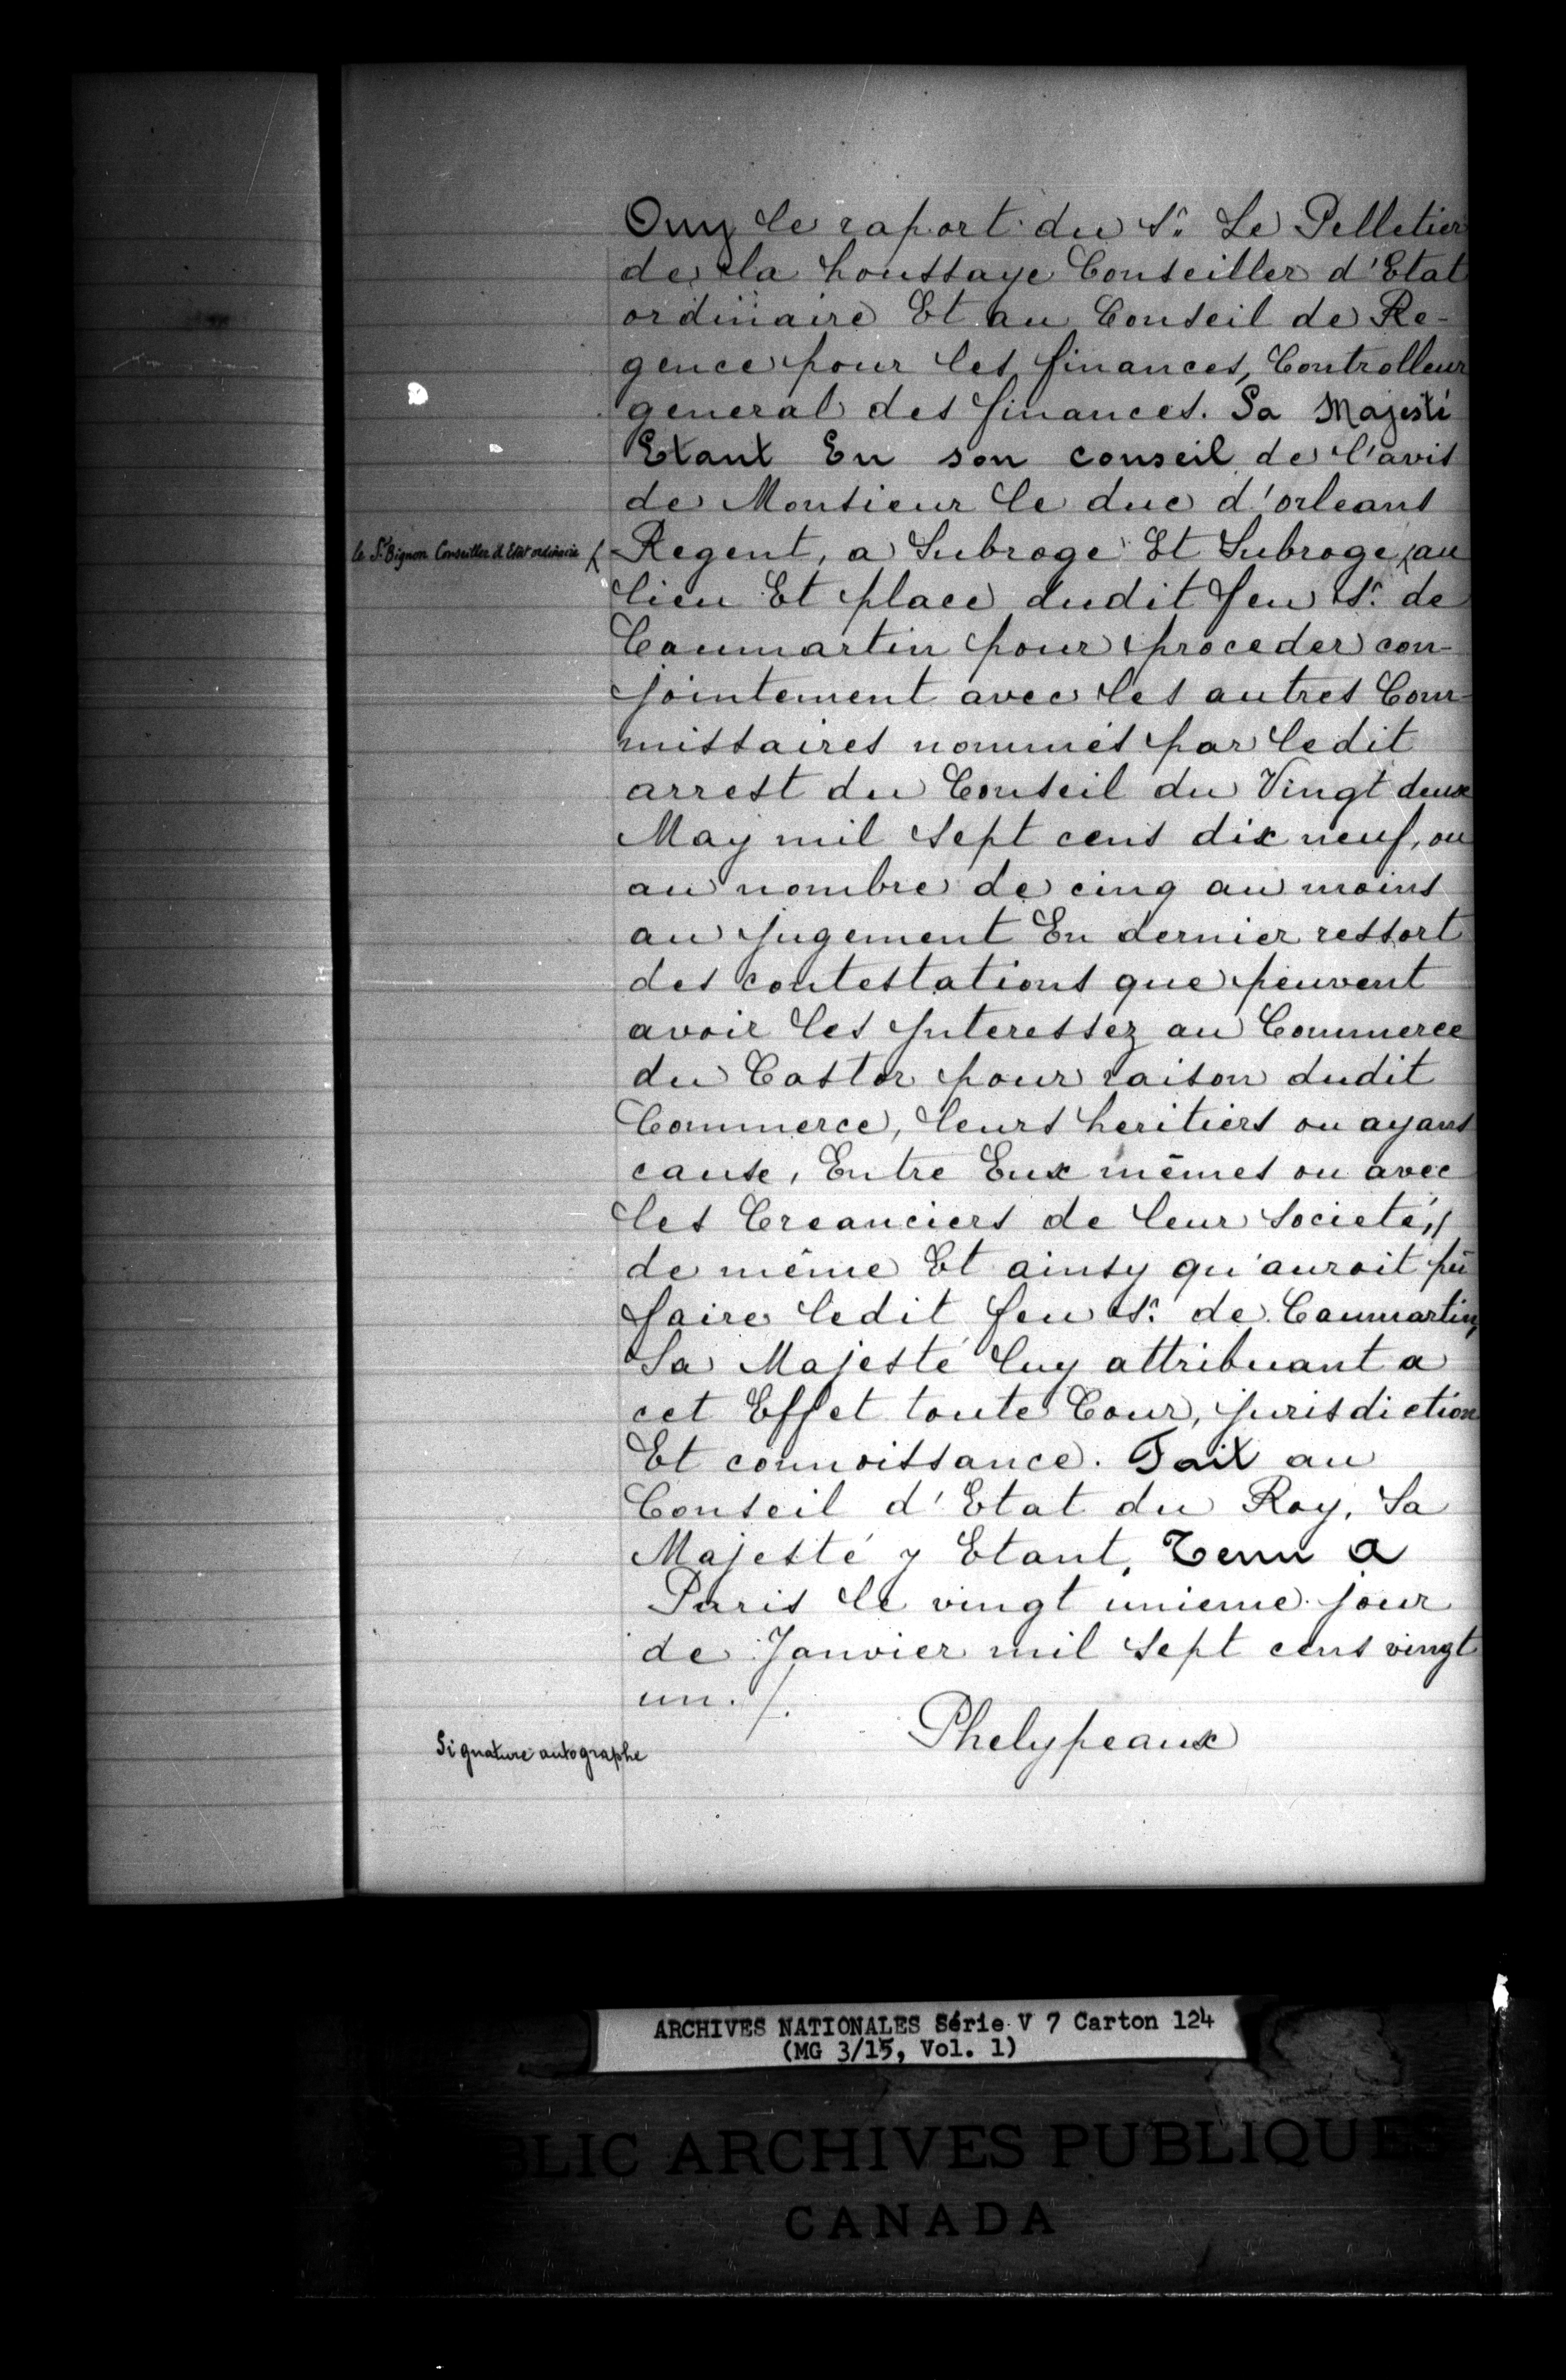 Ouy le raport du Sr. Le Pelletier
de la houssaye Conseiller d'Etat
ordinaire Et au Conseil de Re-
gence pour les finances, Controlleur
general des finances. Sa Majesté
Etant En son conseil de l'avis
de Monsieur le duc d'orleans
le Sr. Bignon Conseiller d'Etat ordinaire
Regent, a Subrogé Et Subroge, au
lieu Et place dudit feu Sr. de
Caumartin pour proceder con-
jointement avec les autres Com-
missaires nommés par ledit
arrest du Conseil du Vingt deux
May mil sept cens dix neuf, ou
au nombre de cinq au moins
au jugement En dernier ressort
des contestations que peuvent
avoir les jnteressez au Commerce
du Castor pour raison dudit
Commerce, leurs heritiers ou ayans
cause, Entre Eux mêmes ou avec
les Creanciers de leur societé,
de même Et ainsy qu'auroit pû
faire ledit feu Sr. de Caumartin,
Sa Majesté luy attribuant a
cet Effet toute Cour, jurisdiction
Et connoissance. Fait au
Conseil d'Etat du Roy, Sa
Majesté y Etant, Tenu a
Paris le vingt unieme jour
de Janvier mil sept cens vingt
un. /.
Phelypeaux
Signature autographe
ARCHIVES NATIONALES Série V 7 Carton 124
(MG 3/15, Vol. 1)
BLIC ARCHIVES PUBLIQUES
CANADA